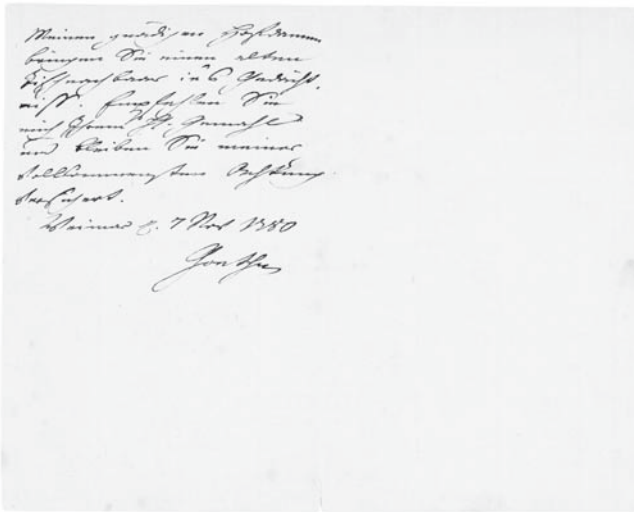 Meinen gnädigen Hofdamen
bringen Sie einen alten
Tischnachbaar ins Gedächt-
niss. Empfehlen Sie
mich Ihrem Gemahl
und bleiben Sie meiner
vollkommensten Achtung
versichert.
Weimar d. 7 Nov 1780
Goethe